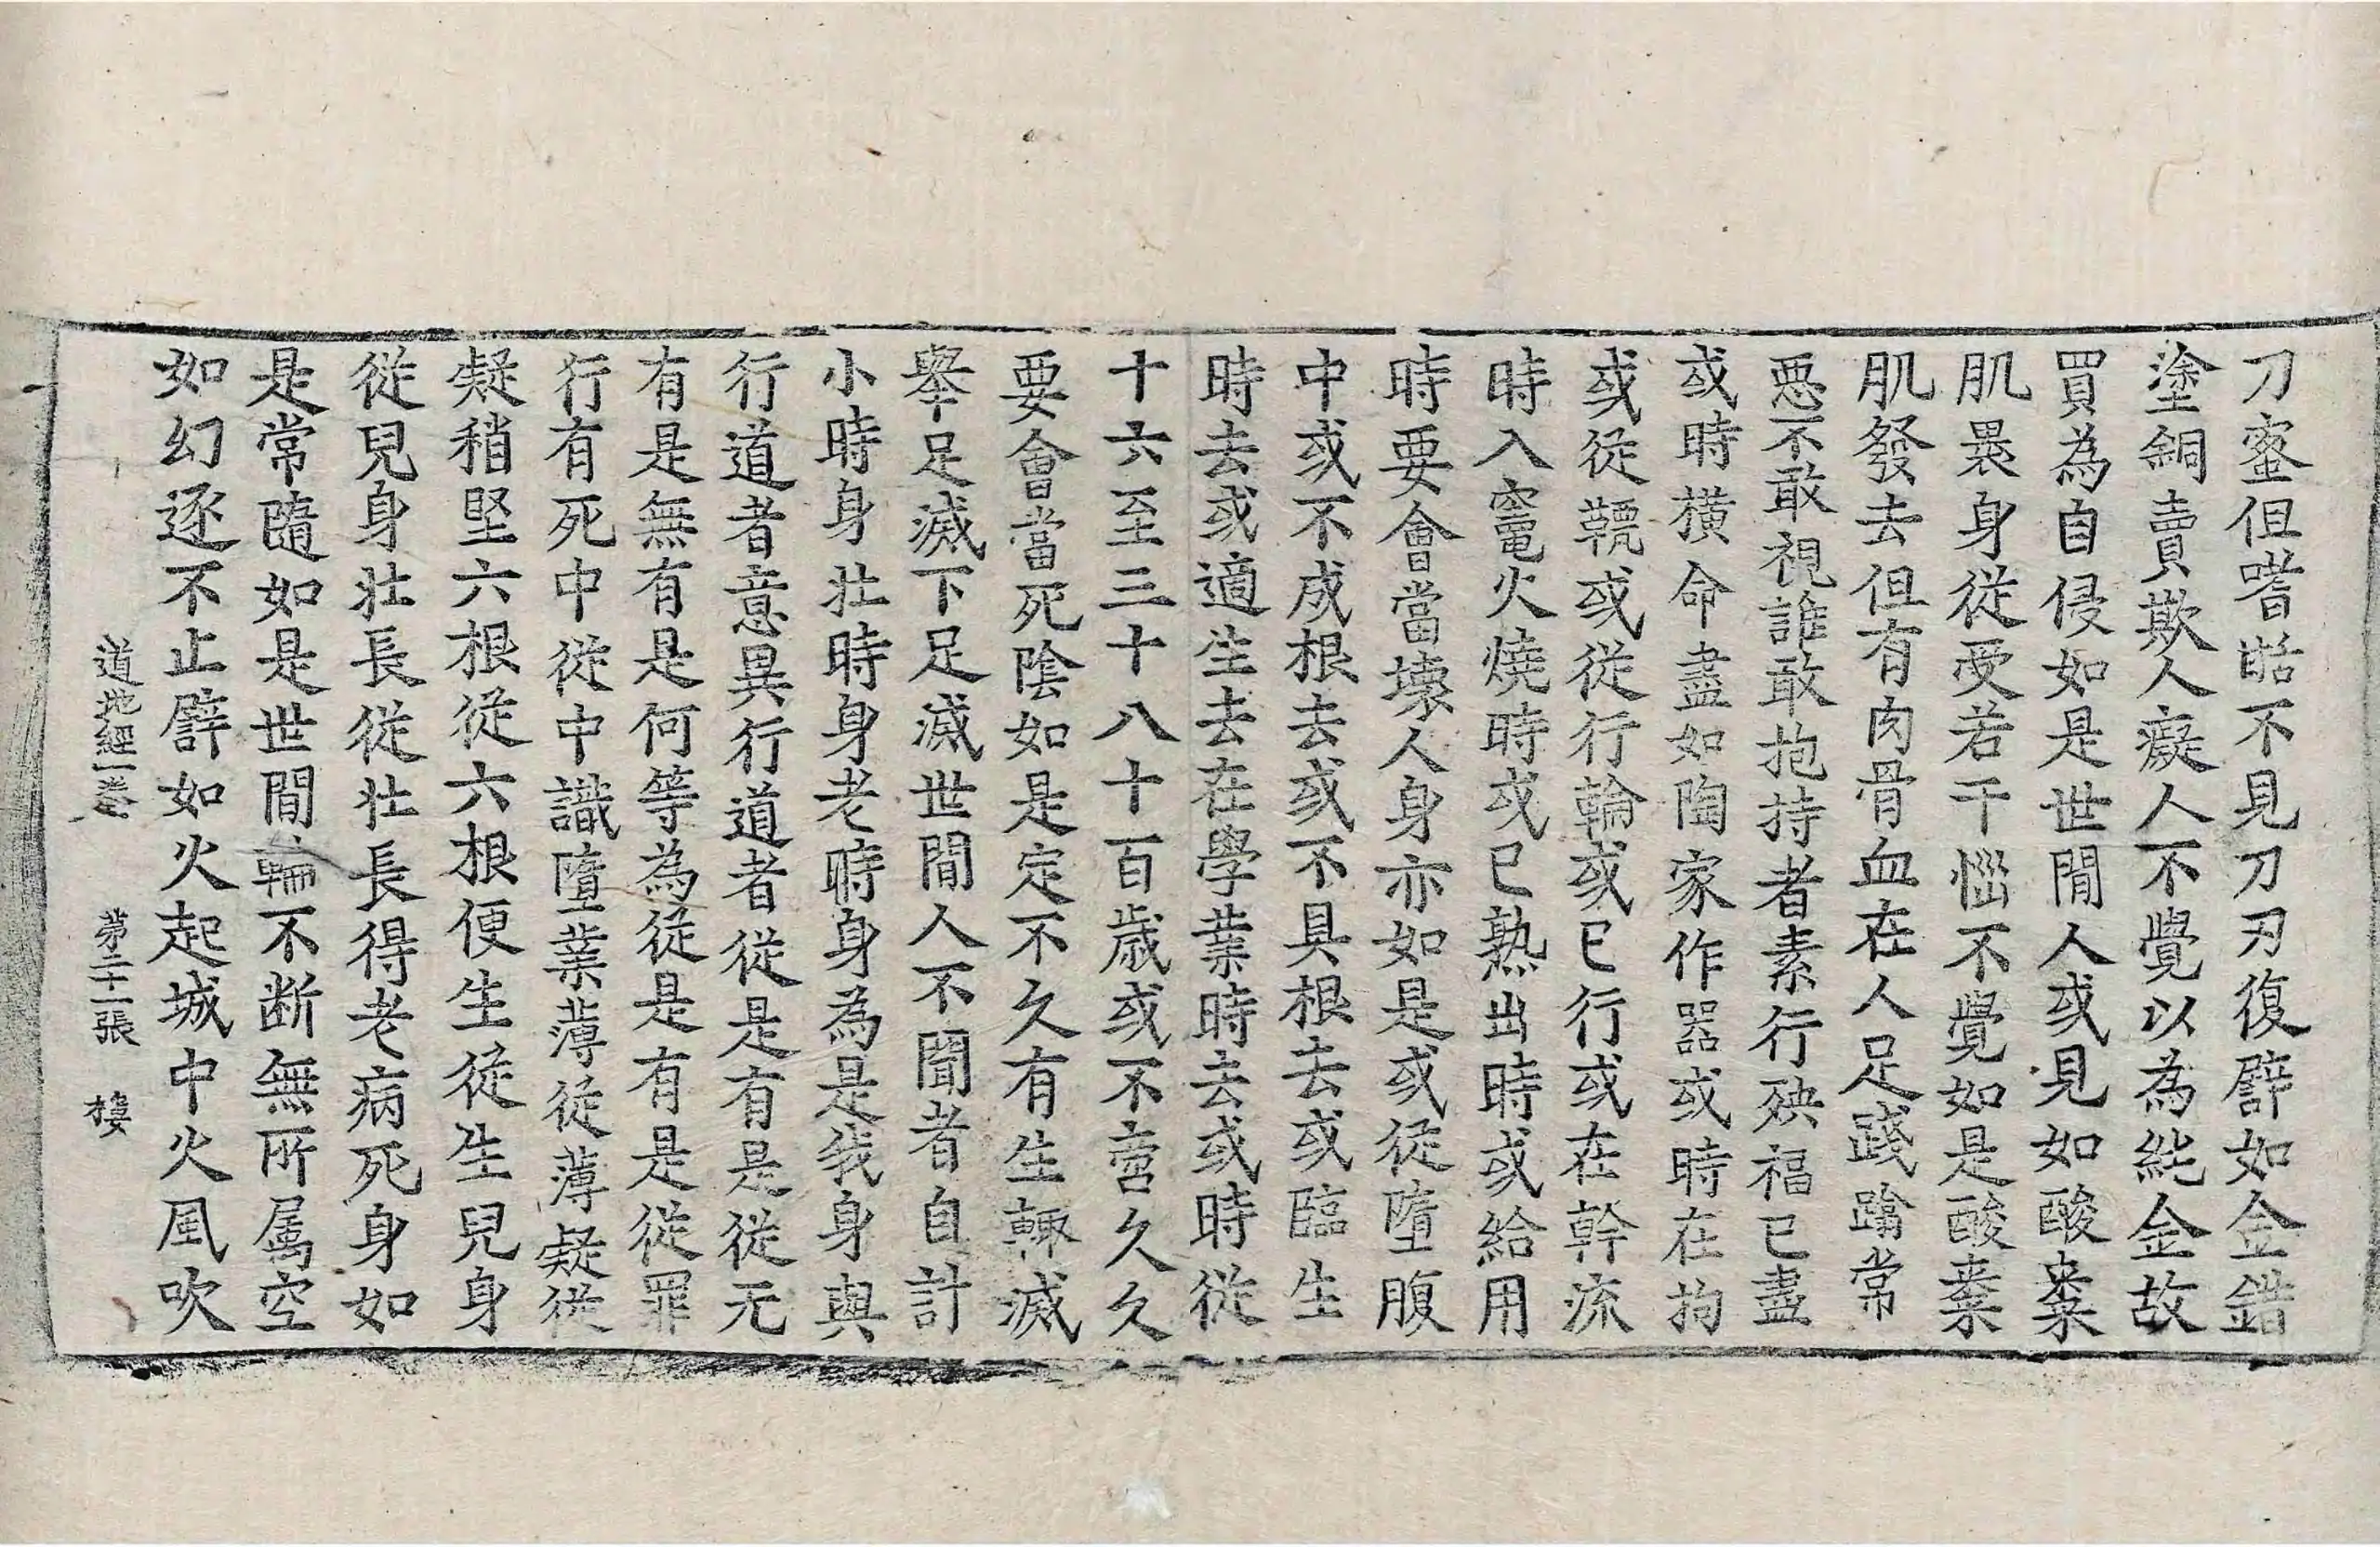 刀蜜但嗜甛不見刀刃復譬如金錯
塗銅賣欺人癡人不覺以為純金故
買為自侵如是世間人或見如酸棗
肌褁身從受若干惱不覺如是酸棗
肌發去但有肉骨血在人足踐蹹常
惡不敢視誰敢抱持者素行殃福已盡
或時橫命盡如陶家作器或時在拘
或從䡄或從行輪或已行或在幹流
時入竈火燒時或已熟出時或給用
時要會當壞人身亦如是或從墮腹
中或不成根去或不具根去或臨生
時去或適生去在學業時去或時從
十六至三十八十百歲或不啻久久
要會當死陰如是定不久有生輙滅
舉足滅下足滅世間人不聞者自計
小時身壯時身老時身為是我身與
行道者意異行道者從是有是從无
有是無有是何等為從是有是從罪
行有死中從中識墮業薄從薄凝從
凝稍堅六根從六根便生從生兒身
從兒身壯長從壯長得老病死身如
是常隨如是世間輪不断無所属空
如幻逐不止譬如火起城中火風吹
道地經一卷 苐二十一張 樓